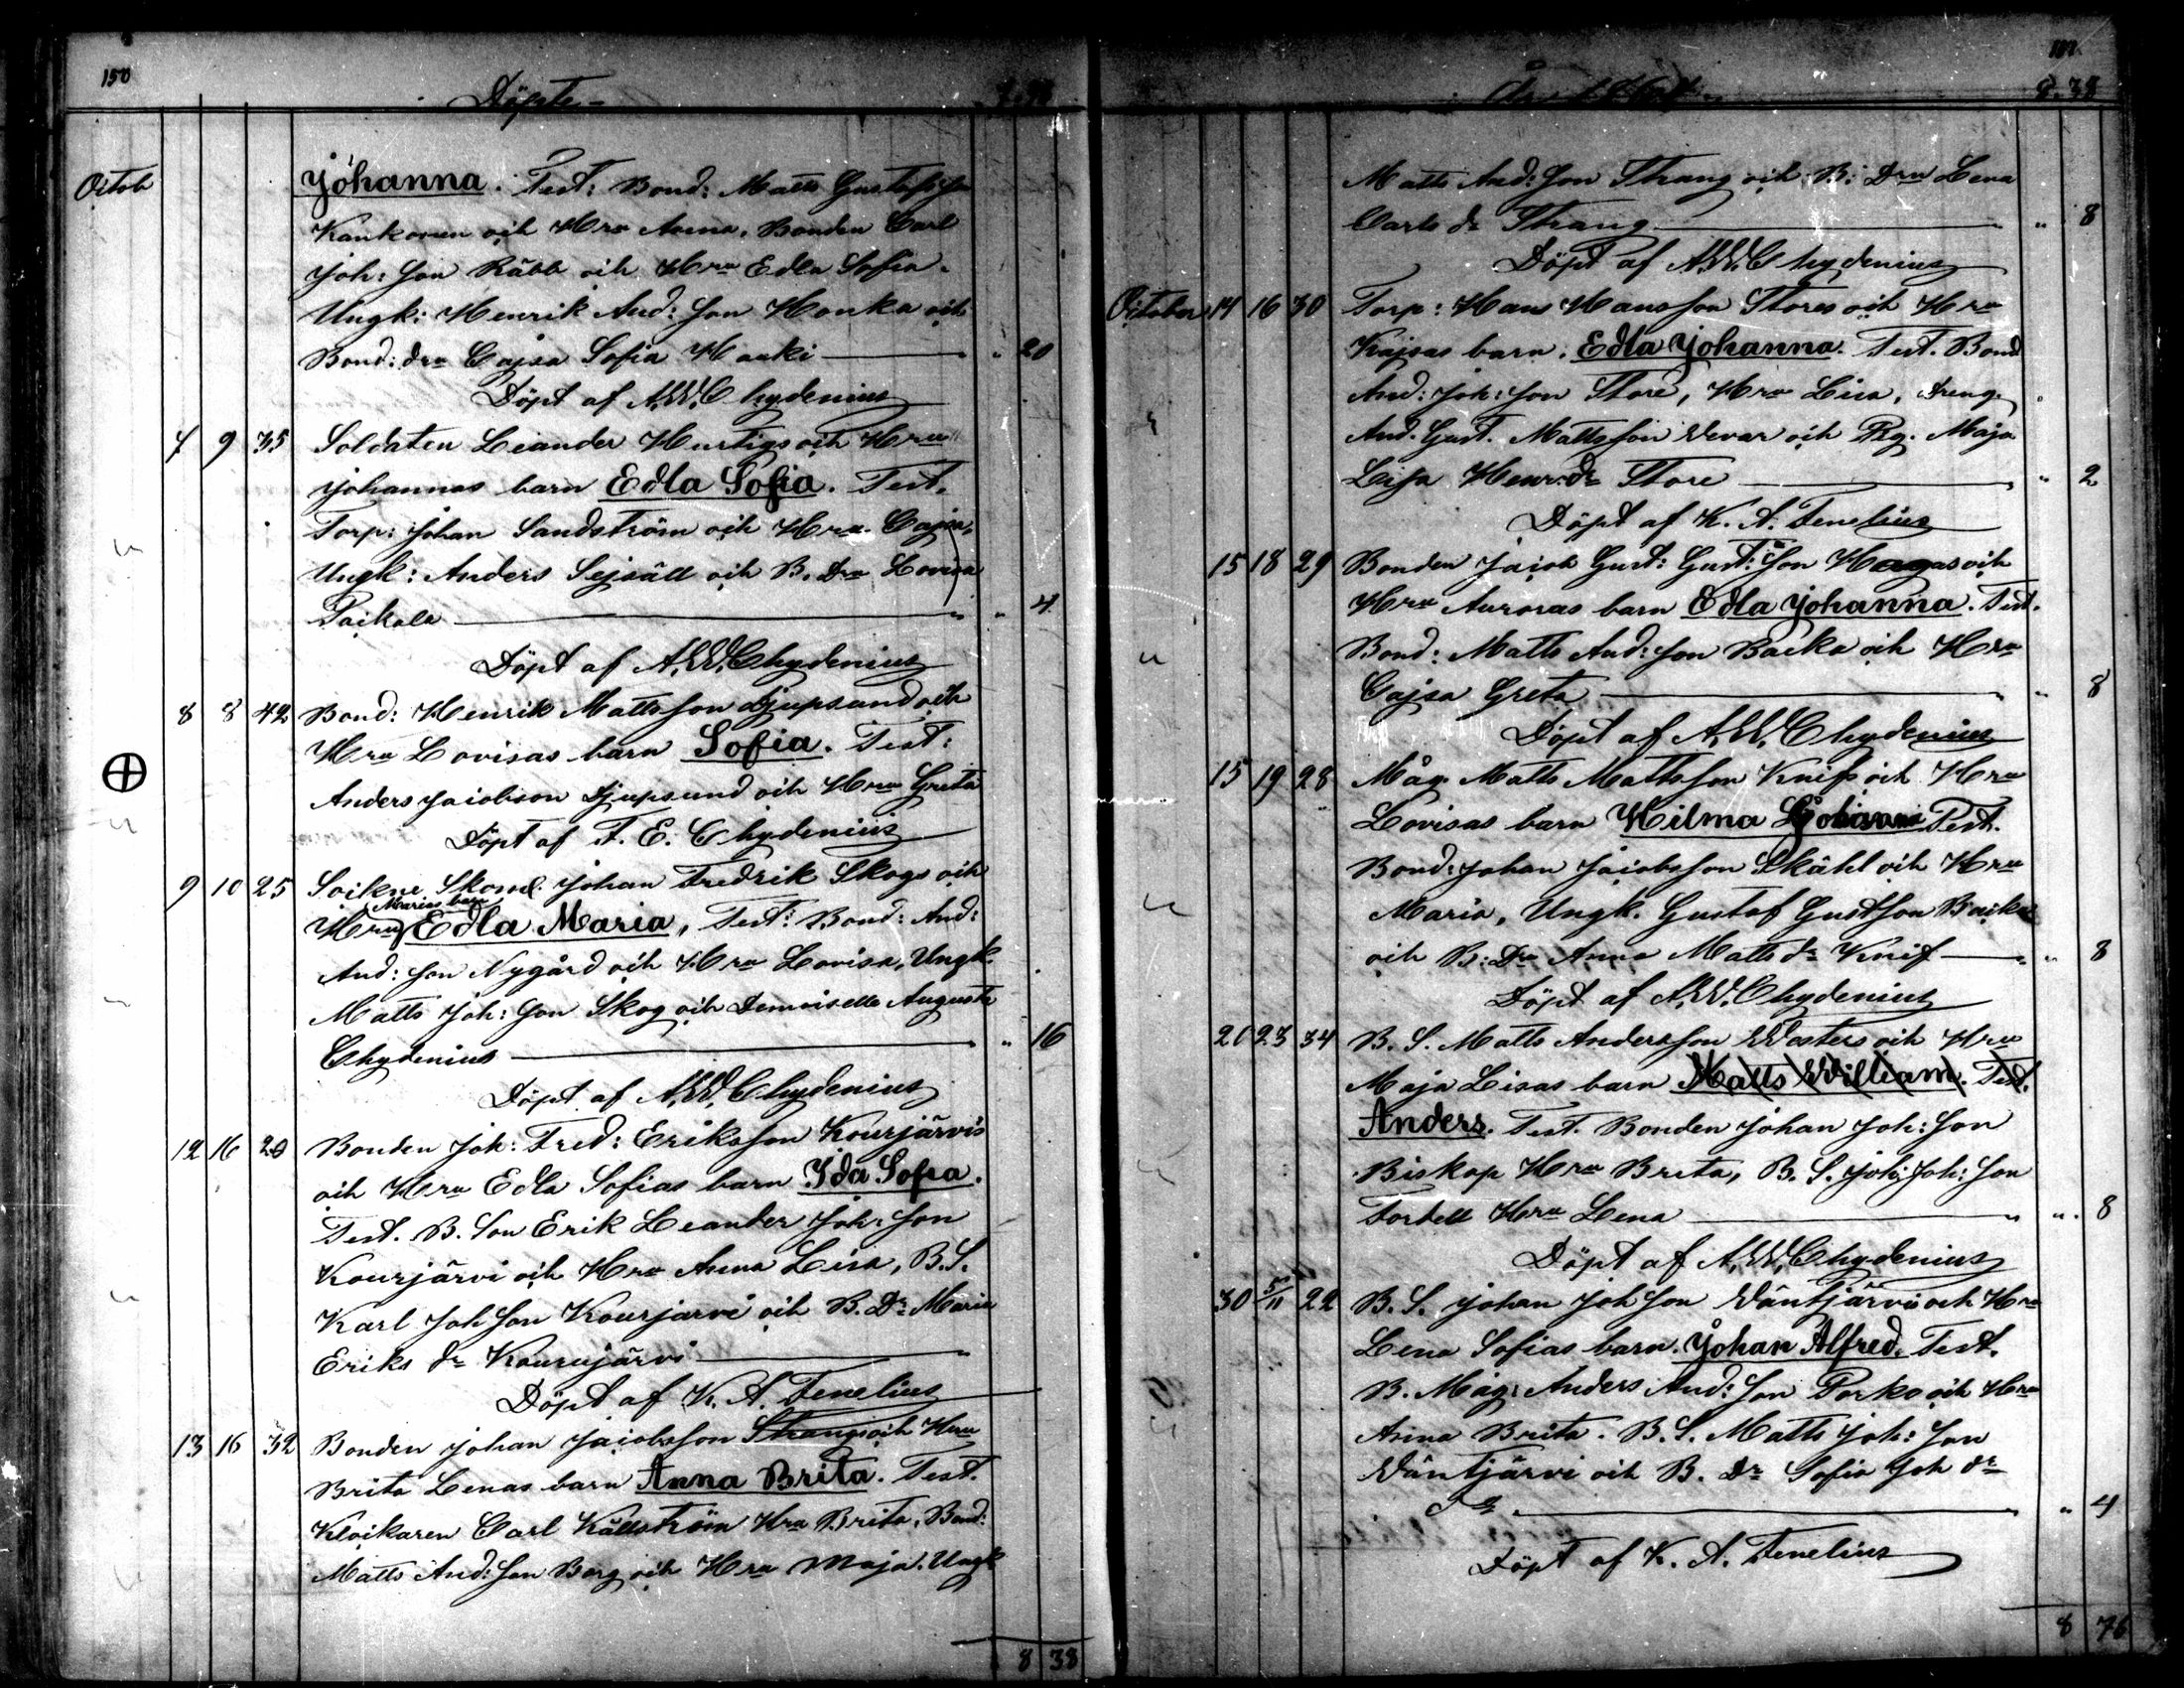 150
Döpte
Octob
Johanna. Test: Bond: Matts Gustafsson
Kankonen och Hru Anna, Bonden Carl
Joh: Son Räbb och Hru Edla Sofia.
Ungk: Henrik And: Son Honka och
Bond: dra Cajsa Sofia Haaki " 20
Döpt af A.W. Chydenius
7 9 35 Soldaten Leander Hurtigs och Hru
Johannas barn Edla Sofia. Test.
Torp: Johan Sandström och Hru Cajsa,
Ungk: Anders Sejsäll och B. Dra Lovisa
Paikala " 4
Döpt af A.W. Chydenius
8 8 42 Bond: Henrik Mattsson Djupsund och
Hru Lovisas barn Sofia. Test:
Anders Jacobson Djupsund och Hru Greta
Döpt af F. E. Chydenius
9 10 25 Sockne Skom. Johan Fredrik Skogs och
Marias barn
Hru Edla Maria, Test: Bond: And:
And: Son Nygård och Hru Lovisa, Ungk.
Matts Joh: Son Skog och Demoiselle Augusta
Chydenius " 16
Döpt af A.W. Chydenius
12 16 20 Bonden Joh: Fred: Eriksson Kourjärvis
och Hru Edla Sofias barn Ida Sofia.
Test. B. Son Erik Leander Joh: Son
Kourjärvi och Hru Anna Lisa, B.S.
Karl Joh Son Kourjarvi och B. Dr Maria
Eriks dr Kourujärvi
Döpt af K. A. Fenelius
13 16 32 Bonden Johan Jacobsson Strangs och Hru
Brita Lenas barn Anna Brita. Test.
Klockaren Carl Källström Hru Brita, Bond:
Matts And: Son Borg och Hru Maja. Ungk
8 38
År 186
8. 38
Matts And: Son Strang och B: Dru Lena
Carls dr Strang " 8
Döpt af A.W. Chydenius
October 14 16 30 Torp: Hans Hansson Stores och Hru
Kajsas barn. Edla Johanna. Test. Bond
And: Joh: Son Store, Hru Lisa, Dreng.
And. Gust. Mattsson Vevar och Pig. Maja
Lisa Henr: dr Store " 2
Döpt af K. A. Fenelius
15 18 29 Bonden Jacob Gust: Gust: Son Hagas och
Hru Auroras barn Edla Johanna. Test.
Bond: Matts And: Son Backa och Hru
Cajsa Greta " 8
Döpt af A.W. Chydenius
15 19 28 Måg Matts Mattsson Knifs och Hru
Lovisas barn Hilma Johanna Test.
Bond: Johan Jacobsson Skåhl och Hru
Maria, Ungk. Gustaf Gustson Backa
och B: Dra Anna Matts dr Knif " 8
Döpt af A.W. Chydenius
20 23 34 B. S. Matts Andersson Westers och Hru
Maja Lisas barn Matts William. Test.
Anders. Test. Bonden Johan Joh: Son
Biskop Hru Brita, B. S. Joh: Joh: Son
Forsell Hru Lena " 8
Döpt af A.W. Chydenius
30 5/11 22 B. S. Johan Joh Son Väntjärvis och Hru
Lena Sofias barn. Johan Alfred. Test.
B. Måg: Anders And: Son Porko och Hru
Anna Brita. B. S. Matts Joh: Son
Väntjärvi och B. Dr Sofia Joh dr
" 4
Döpt af K. A. Fenelius
8 76